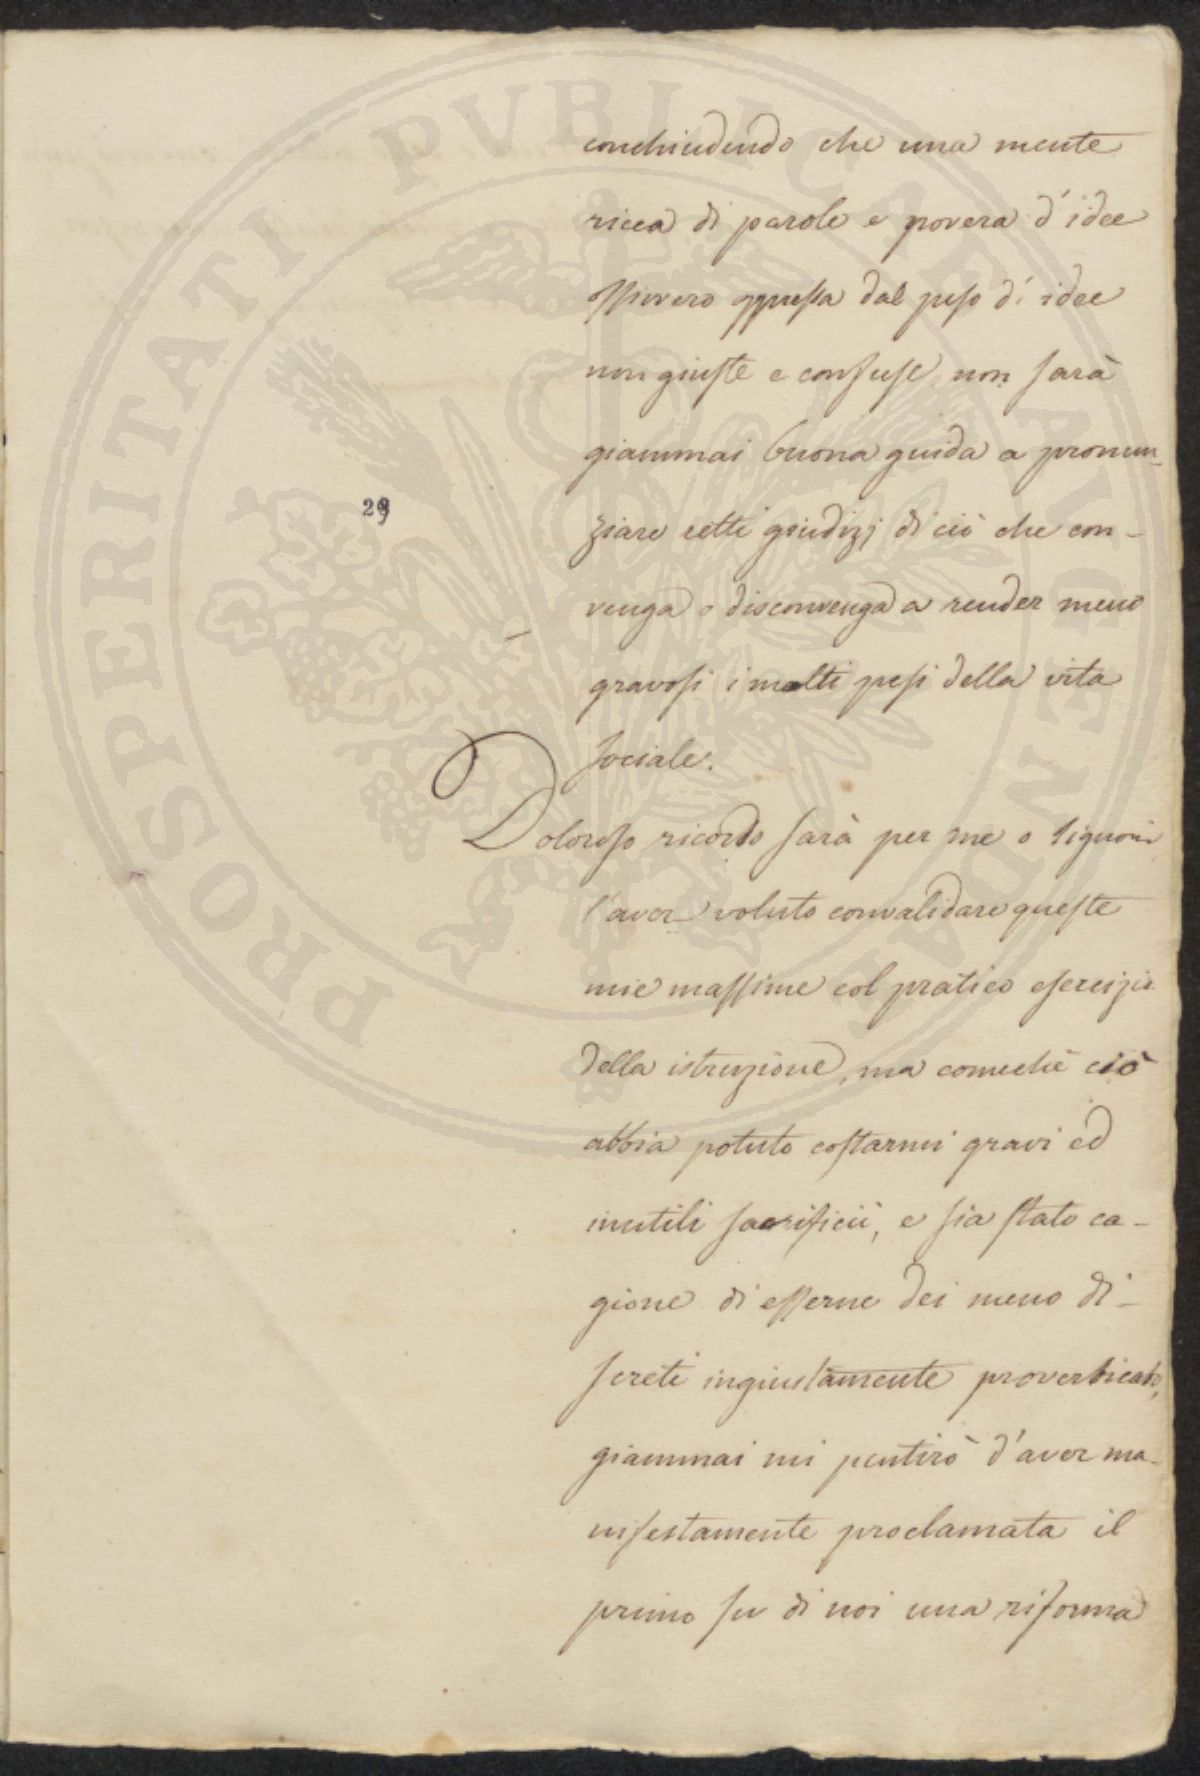 conchiudendo che una mente
ricca di parole e povera d'idee
ossivvero oppressa dal peso d'idee
non giuste e confuse, non sarà
giammai buona guida a pronun-
ziare retti giudizj di ciò che con-
venga o disconvenga a render meno
gravosi i molti pesi della vita
sociale.
29
Doloroso ricordo sarà per me o signori
l'aver voluto convalidare queste
mie massime col pratico esercizio
della istruzione, ma comechè ciò
abbia potuto costarmi gravi ed
inutili sacrificii, e sia stato ca-
gione di esserne dei meno di-
screti ingiustamente proverbiato,
giammai mi pentirò d'aver ma-
nifestamente proclamata il
primo su di noi una riforma
PROSPERITATI PVBLICAE AVGENDAE